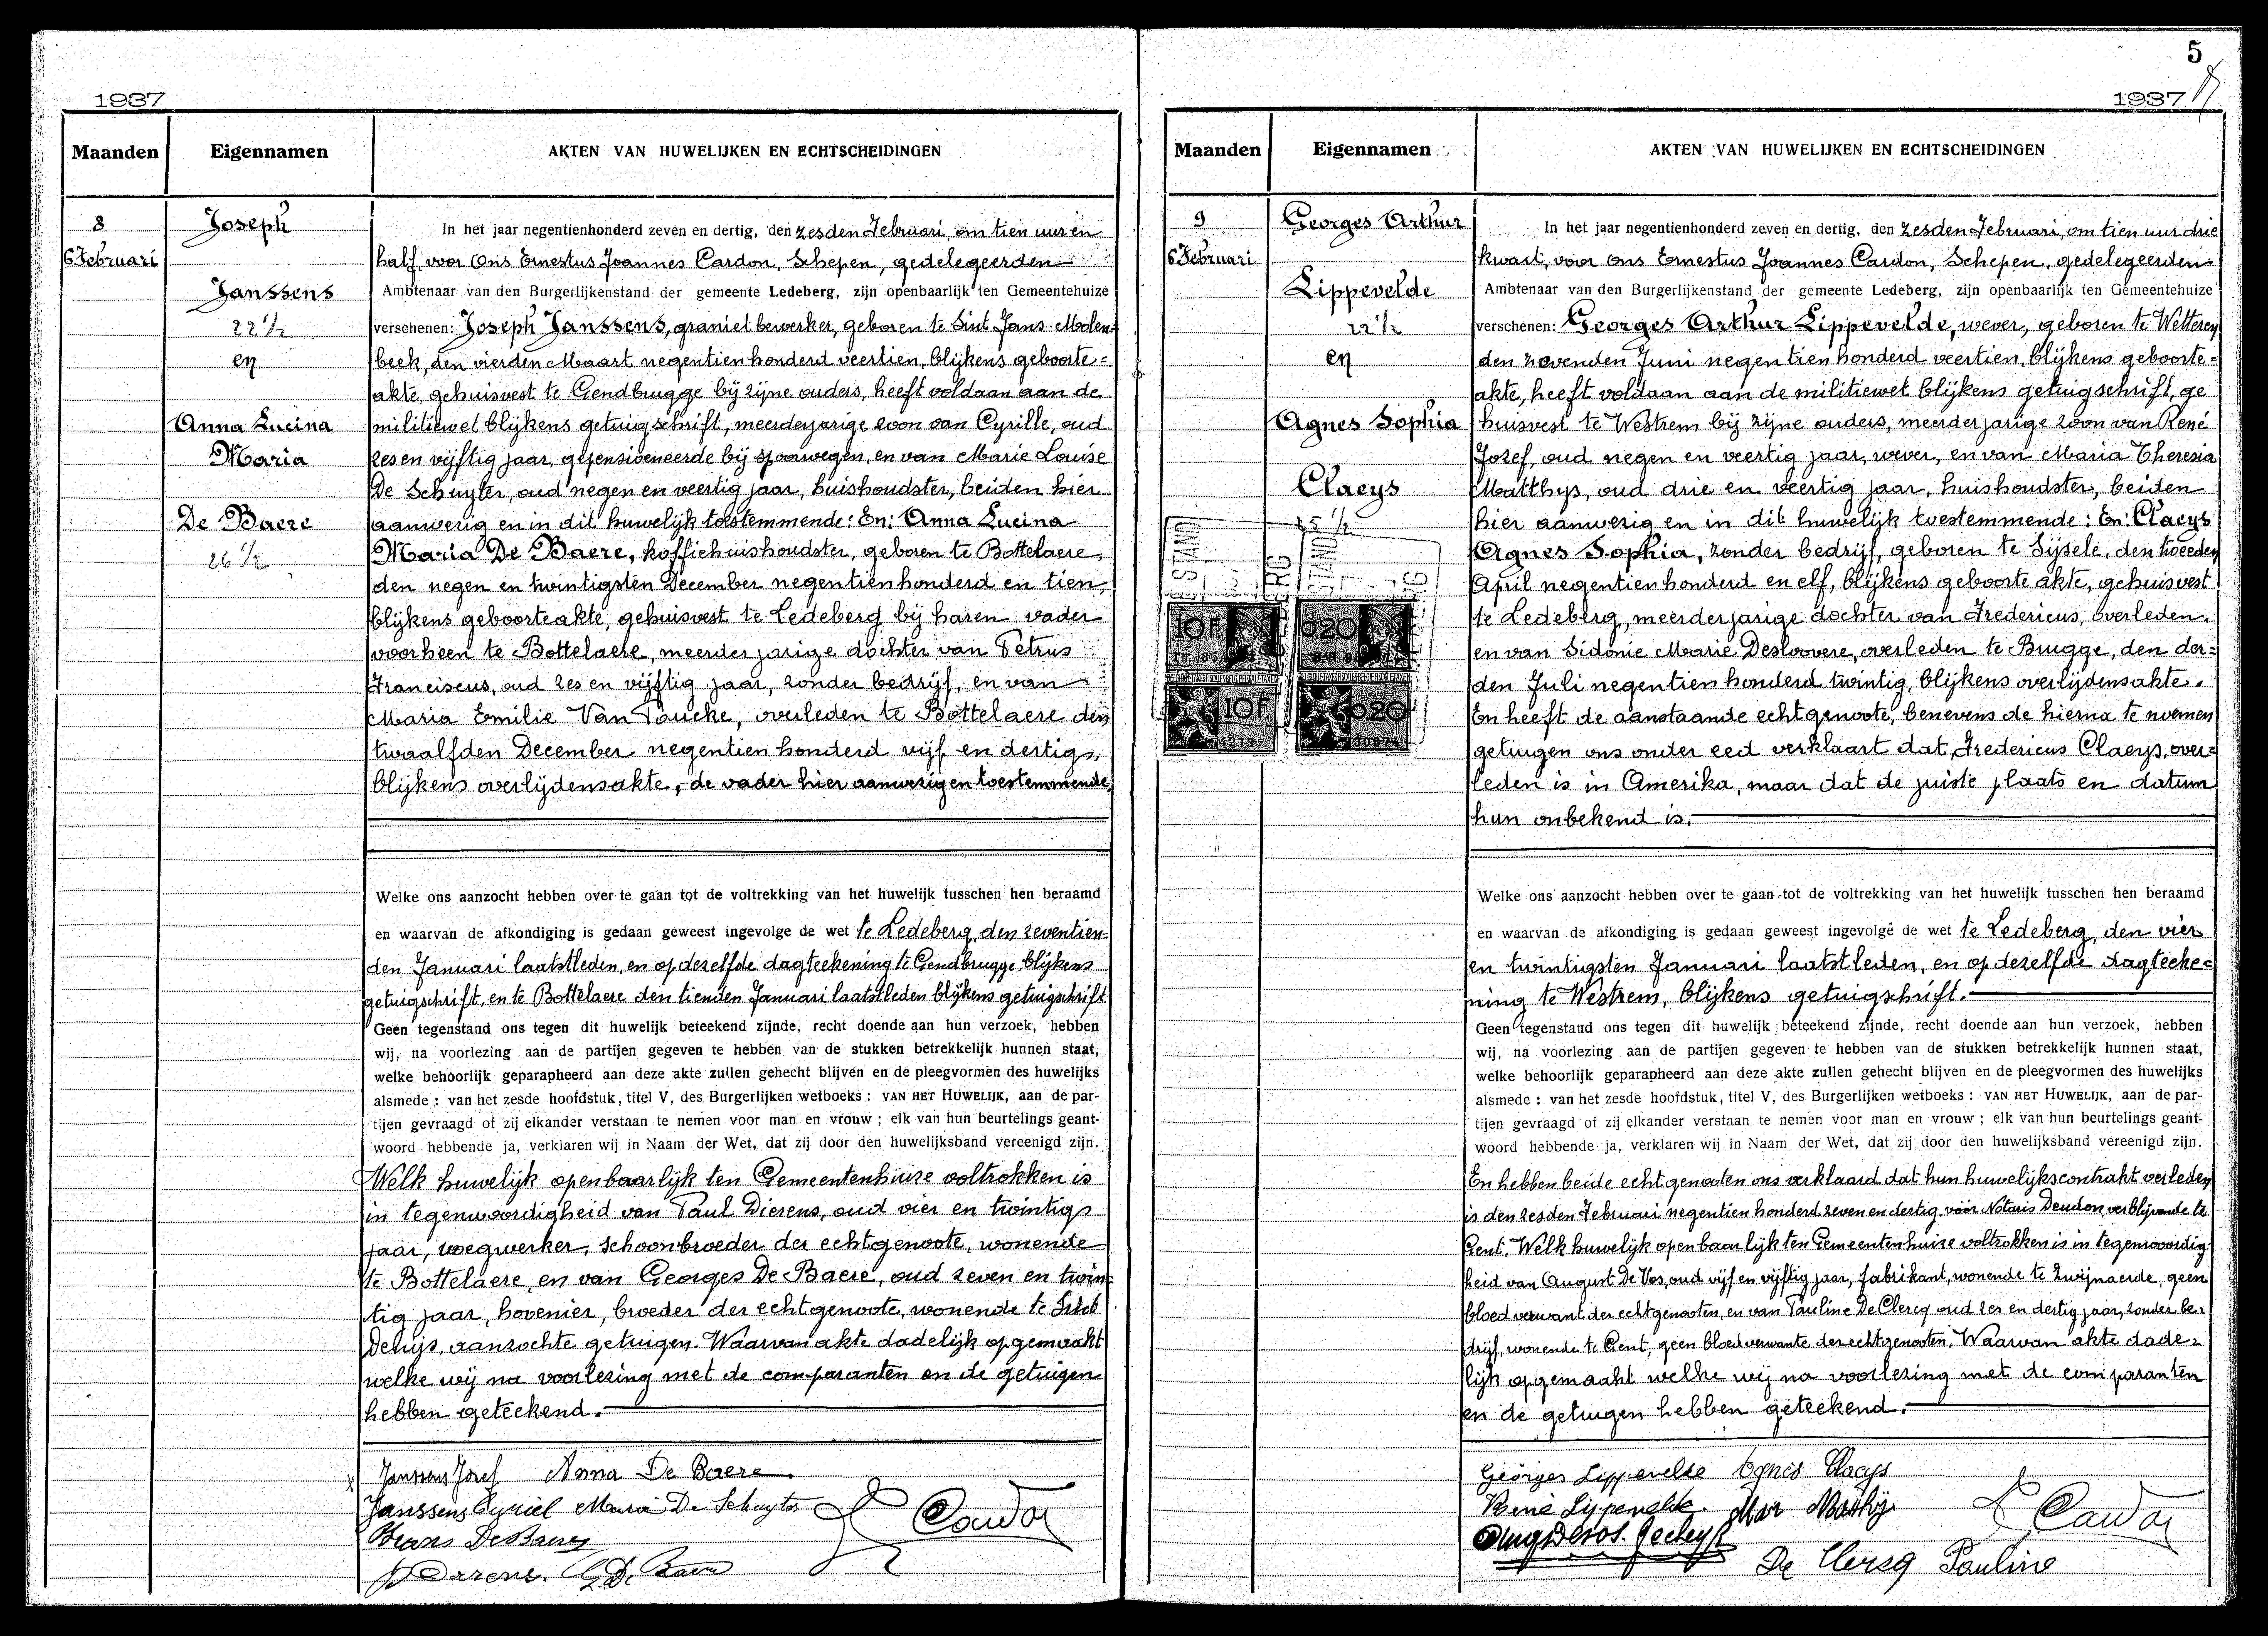 1937
Maanden
Eigennamen
AKTEN VAN HUWELIJKEN EN ECHTSCHEIDINGEN
8
6 Februari
Joseph
Janssens
22 1/2
en
Anna Lucina
Maria
De Baere
26 1/2
In het jaar negentienhonderd zeven en dertig, den zesden Februari, om tien uur en
half, voor Ons Ernestus Joannes Cardon, Schepen, gedelegeerden
Ambtenaar van den Burgerlijkenstand der gemeente Ledeberg, zijn openbaarlijk ten Gemeentehuize
verschenen: Joseph Janssens, graniet bewerker, geboren te Sint Jans Molen-
beek, den vierden Maart negentien honderd veertien, blijkens geboorte=
akte, gehuisvest te Gendbrugge bij zijne ouders, heeft voldaan aan de
militiewet blijkens getuigschrift, meerderjarige zoon van Cyrille, oud
zes en vijftig jaar, gepensioneerde bij spoorwegen, en van Marie Louise
De Schuyter, oud negen en veertig jaar, huishoudster, beiden hier
aanwezig en in dit huwelijk toestemmende: En: Anna Lucina
Maria De Baere, koffiehuishoudster, geboren te Bottelaere,
den negen en twintigsten December negentien honderd en tien,
blijkens geboorteakte, gehuisvest te Ledeberg bij haren vader
voorheen te Bottelaere, meerderjarige dochter van Petrus
Franciscus, oud zes en vijftig jaar, zonder bedrijf, en van
Maria Emilie Van Poucke, overleden te Bottelaere den
twaalfden December negentien honderd vijf en dertig,
blijkens overlijdensakte, de vader hier aanwezig en toestemmende,
Welke ons aanzocht hebben over te gaan tot de voltrekking van het huwelijk tusschen hen beraamd
en waarvan de afkondiging is gedaan geweest ingevolge de wet te Ledeberg, den zeventien-
den Januari laatstleden, en op dezelfde dagteekening te Gendbrugge blijkens
getuigschrift, en te Bottelaere den tienden Januari laatstleden blijkens getuigschrift
Geen tegenstand ons tegen dit huwelijk beteekend zijnde, recht doende aan hun verzoek, hebben
wij, na voorlezing aan de partijen gegeven te hebben van de stukken betrekkelijk hunnen staat,
welke behoorlijk geparapheerd aan deze akte zullen gehecht blijven en de pleegvormen des huwelijks
alsmede : van het zesde hoofdstuk, titel V, des Burgerlijken wetboeks : VAN HET HUWELIJK, aan de par-
tijen gevraagd of zij elkander verstaan te nemen voor man en vrouw ; elk van hun beurtelings geant-
woord hebbende ja, verklaren wij in Naam der Wet, dat zij door den huwelijksband vereenigd zijn.
Welk huwelijk openbaarlijk ten Gemeentenhuize voltrokken is
in tegenwoordigheid van Paul Dierens, oud vier en twintig
jaar, voegwerker, schoonbroeder der echtgenoote, wonende
te Bottelaere, en van Georges De Baere, oud zeven en twin-
tig jaar, hovenier, broeder der echtgenoote, wonende te Sint
Denijs, aanzochte getuigen. Waarvan akte dadelijk opgemaakt
welke wij na voorlezing met de comparanten en de getuigen
hebben geteekend.
Janssens Jozef Anna De Baere
Janssens Cyriel Maria De Schuyter
E Cardon
Frans De Baere
P Dierens. G De Baere
5
1937
Maanden
Eigennamen
AKTEN VAN HUWELIJKEN EN ECHTSCHEIDINGEN
9
6 Februari
Georges Arthur
Lippevelde
22 1/2
en
Agnes Sophia
Claeys
25 1/2
10F
020
10F
020
In het jaar negentienhonderd zeven en dertig, den zesden Februari, om tien uur drie
kwart, voor Ons Ernestus Joannes Cardon, Schepen, gedelegeerden
Ambtenaar van den Burgerlijkenstand der gemeente Ledeberg, zijn openbaarlijk ten Gemeentehuize
verschenen: Georges Arthur Lippevelde, wever, geboren te Wetteren
den zevenden Juni negentien honderd veertien, blijkens geboorte=
akte, heeft voldaan aan de militiewet blijkens getuigschrift, ge
huisvest te Westrem bij zijne ouders, meerderjarige zoon van René
Jozef, oud negen en veertig jaar, wever, en van Maria Theresia
Matthys, oud drie en veertig jaar, huishoudster, beiden
hier aanwezig en in dit huwelijk toestemmende: En: Claeys
Agnes Sophia, zonder bedrijf, geboren te Sijsele, den tweeden
April negentien honderd en elf, blijkens geboorte akte, gehuisvest
te Ledeberg, meerderjarige dochter van Fredericus, overleden,
en van Sidonie Marie Desloovere, overleden te Brugge, den der=
den Juli negentien honderd twintig, blijkens overlijdensakte.
En heeft de aanstaande echtgenoote, benevens de hierna te noemen
getuigen ons onder eed verklaart dat Fredericus Claeys, over=
leden is in Amerika, maar dat de juiste plaats en datum
hun onbekend is.
Welke ons aanzocht hebben over te gaan tot de voltrekking van het huwelijk tusschen hen beraamd
en waarvan de afkondiging is gedaan geweest ingevolge de wet te Ledeberg, den vier
en twintigsten Januari laatstleden, en op dezelfde dagteeke=
ning te Westrem, blijkens getuigschrift.
Geen tegenstand ons tegen dit huwelijk beteekend zijnde, recht doende aan hun verzoek, hebben
wij, na voorlezing aan de partijen gegeven te hebben van de stukken betrekkelijk hunnen staat,
welke behoorlijk geparapheerd aan deze akte zullen gehecht blijven en de pleegvormen des huwelijks
alsmede : van het zesde hoofdstuk, titel V, des Burgerlijken wetboeks : VAN HET HUWELIJK, aan de par-
tijen gevraagd of zij elkander verstaan te nemen voor man en vrouw ; elk van hun beurtelings geant-
woord hebbende ja, verklaren wij in Naam der Wet, dat zij door den huwelijksband vereenigd zijn.
En hebben beide echtgenooten ons verklaard dat hun huwelijkscontrakt verleden
is den zesden Februari negentien honderd zeven en dertig, voor Notaris Deudon, verblijvende te
Gent. Welk huwelijk openbaarlijk ten Gemeentenhuize voltrokken is in tegenwoordig-
heid van August De Vos, oud vijf en vijftig jaar, fabrikant, wonende te Zwijnaerde, geen
bloedverwant der echtgenooten, en van Pauline De Clercq oud zes en dertig jaar, zonder be-
drijf, wonende te Gent, geen bloedverwante der echtgenooten. Waarvan akte dade=
lijk opgemaakt welke wij na voorlezing met de comparanten
en de getuigen hebben geteekend.
Georges Lippevelde Agnes Claeys
René Lippevelde. Mar Matthijs
E Cardon
Aug De Vos.
De Clercq Pauline